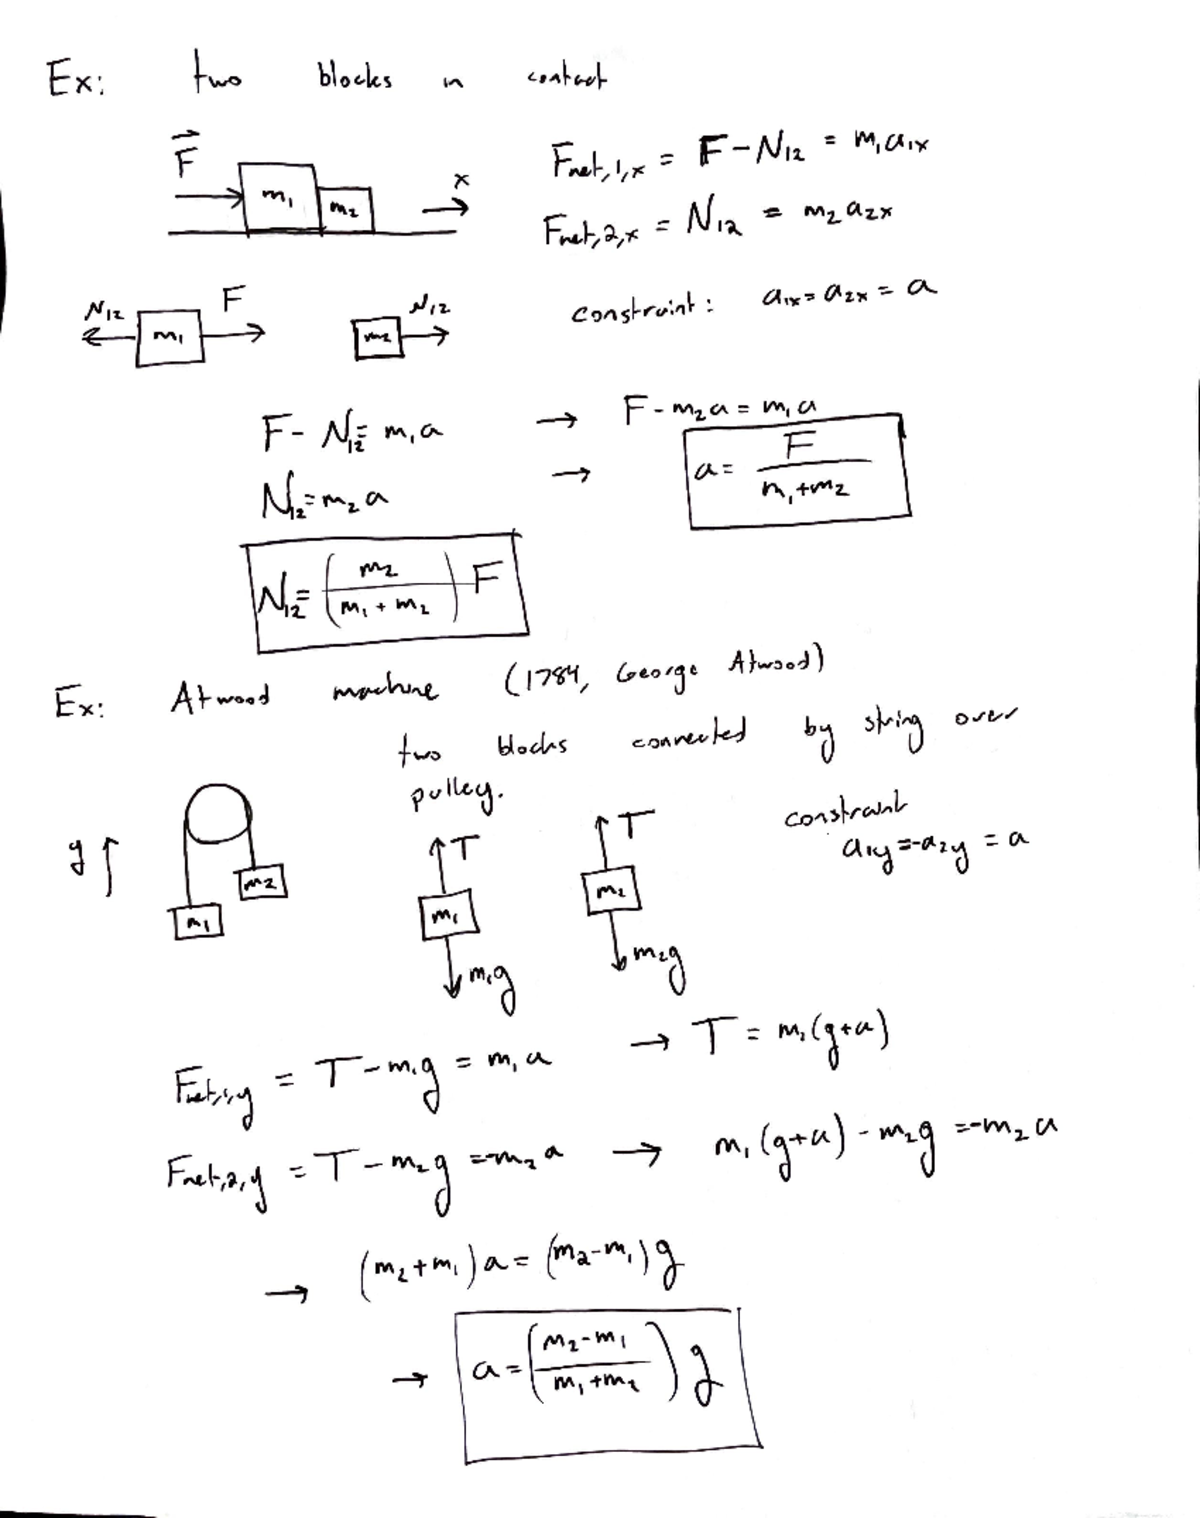 Ex: two blocks in contact
F⃗
m₁ m₂ x
F_net,1,x = F - N₁₂ = m₁a₁ₓ
F_net,2,x = N₁₂ = m₂a₂ₓ
N₁₂ m₁ F m₂ N₁₂
constraint: a₁ₓ = a₂ₓ = a
F - N₁₂ = m₁a → F - m₂a = m₁a
N₁₂ = m₂a → a = F/(m₁+m₂)
N₁₂ = (m₂/(m₁+m₂)) F
Ex: Atwood machine (1784, George Atwood)
two blocks connected by string over
pulley.
y m₁ m₂
T m₁ m₁g
T m₂ m₂g
constraint
a₁y = -a₂y = a
F_net,1,y = T - m₁g = m₁a → T = m₁(g+a)
F_net,2,y = T - m₂g = -m₂a → m₁(g+a) - m₂g = -m₂a
→ (m₂+m₁)a = (m₂-m₁)g
→ a = ((m₂-m₁)/(m₁+m₂)) g